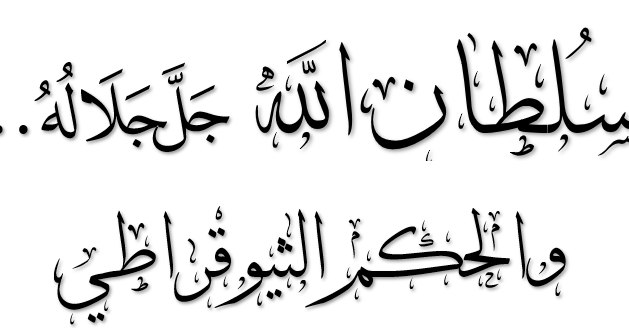 سُلطان اللّٰهُ جَلَّ جَلَالُهُ..
والحكم الثيوقراطي